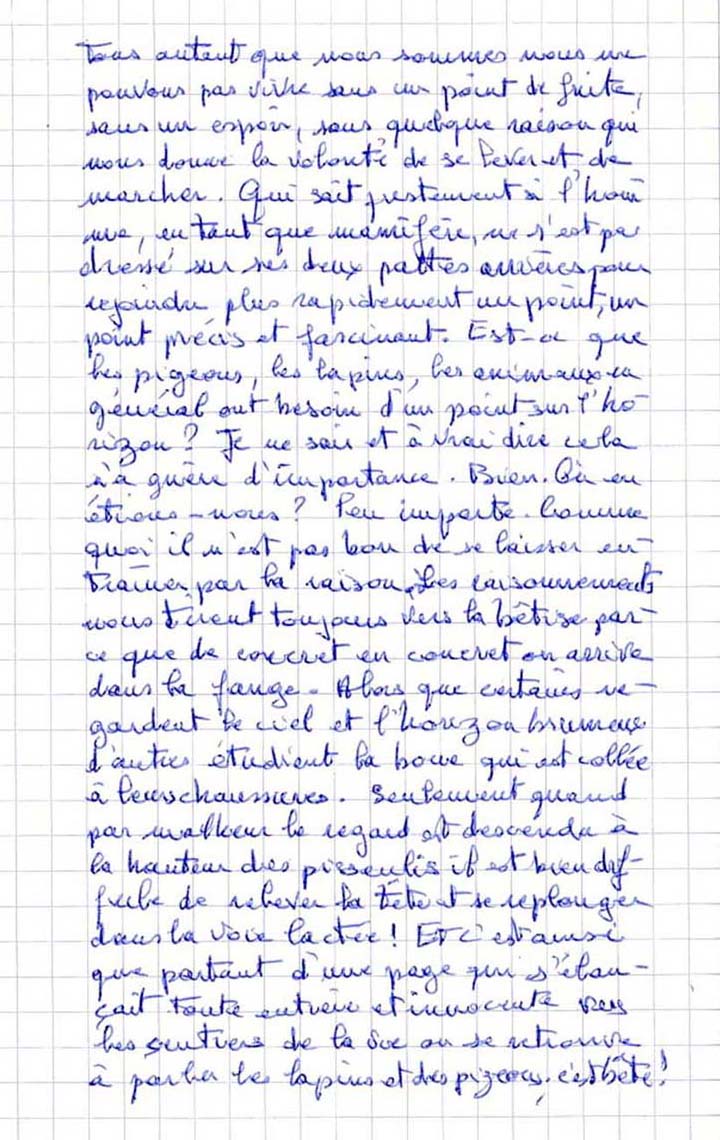 Tous autant que nous sommes nous ne
pouvons pas vivre sans un point de fuite,
sans un espoir, sans quelque raison qui
nous donne la volonté de se lever et de
marcher. Qui sait justement si l'hom
me, en tant que mamifère, ne s'est pas
dressé sur ses deux pattes arrières pour
rejoindre plus rapidement un point, un
point précis et fascinant. Est-ce que
les pigeons, les lapins, les animaux en
général ont besoin d'un point sur l'ho-
rizon ? Je ne sais et à vrai dire cela
n'a guère d'importance. Bien. Où en
étions-nous ? Peu importe. Comme
quoi il n'est pas bon de se laisser en-
traîner par la raison. Les raisonnements
nous tirent toujours vers la bêtise par-
ce que de concret en concret on arrive
dans la fange. Alors que certains re-
gardent le ciel et l'horizon brumeux
d'autres étudient la boue qui est collée
à leurs chaussures. Seulement quand
par malheur le regard est descendu à
la hauteur des pissenlis il est bien dif-
ficile de relever la tête et se replonger
dans la voie lactée ! Et c'est ainsi
que partant d'une page qui s'élan-
çait toute entière et innocente vers
les sentiers de la vie on se retrouve
à parler les lapins et des pigeons, c'est bête !